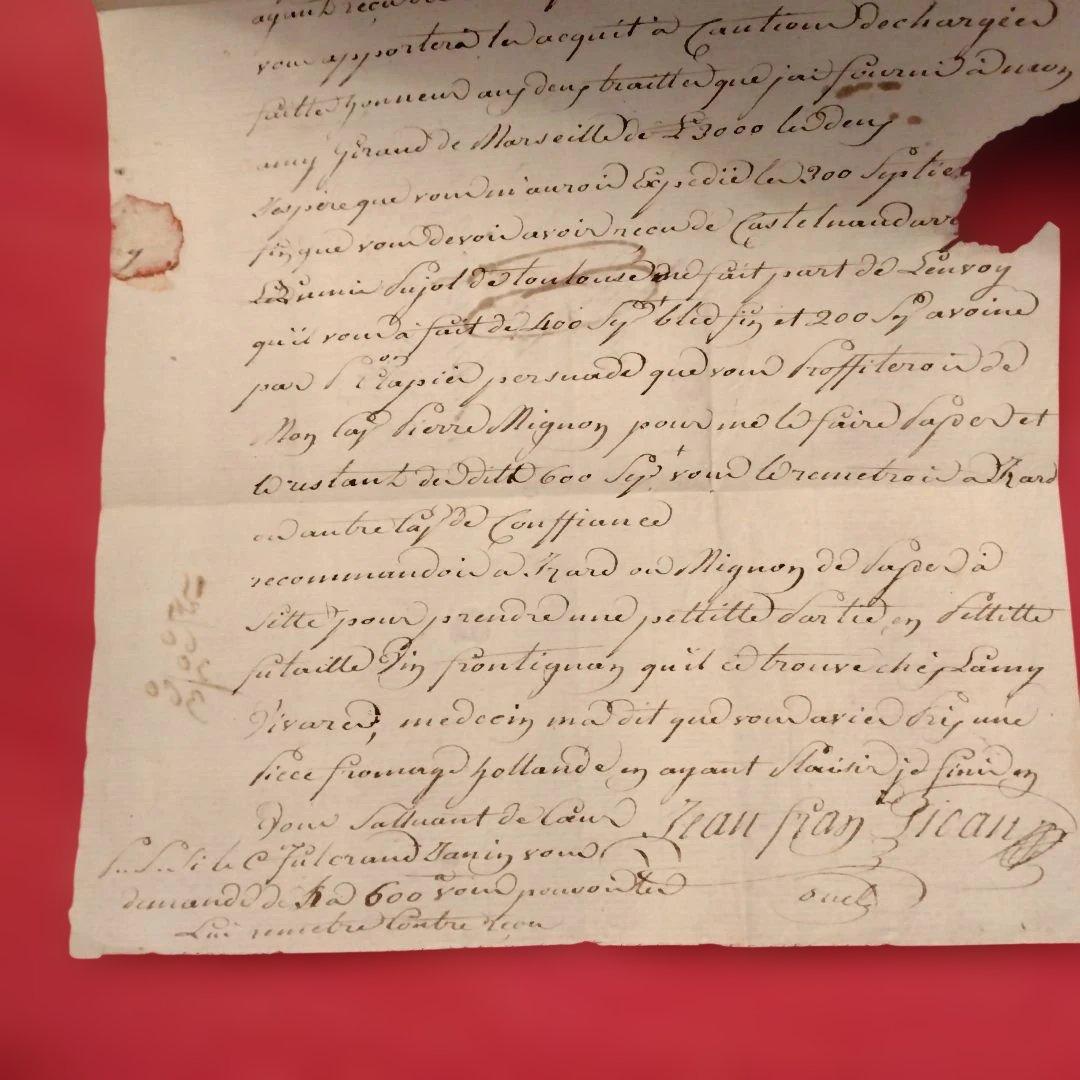 ayant reçu
vous apportera les acquit à Caution dechargées
faitte honneur aux deux traittes que jai fourni à mon
amy Giraud de Marseille de £3000 les deux
Jespere que vous m'aurois Expédié les 300 Septie
fin que vous devois avoir reçu de Castelnaudarr
Pujol de toulouse me fait part de Lenvoy
qu'il vous à fait de 400 Sep.t bled fin et 200 Sep avoine
par P. Clapiés persuadé que vous Proffiterois de
Mon Cap Pierre Mignon pour me le faire Passer et
le restant desditt 600 Sep.t vous le remetrois a Izard
ou autre Cap de Conffiance
recommandois a Izard ou Mignon de Passer à
Sette pour prendre une pettitte Partie en Pettitte
futaille Vin frontignan qu'il ce trouve chés Lamy
Vivares, medecin ma dit que vous aviés Pris une
Piece fromage hollande en ayant Plaisir je finis en
Vous Salluant de Cœur Jean fran
P.. S.. Si le C. Fulcrand Janin vous
demande de 4 a 600 vous pouvois les
Lui remetre Contre reçu